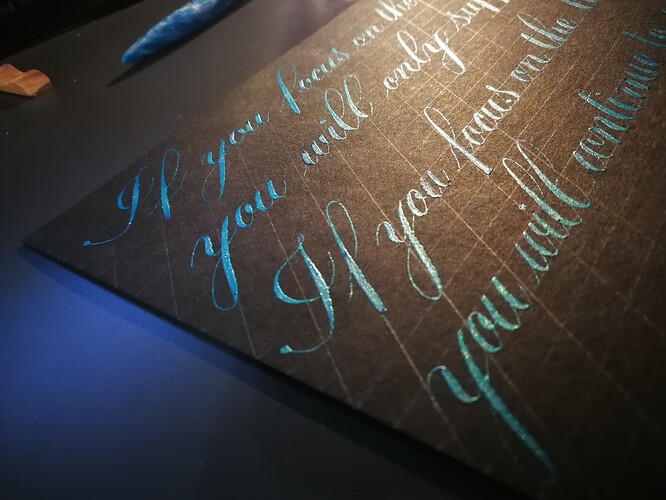 If you focus on the
you will only
If you focus on the
you will continue to